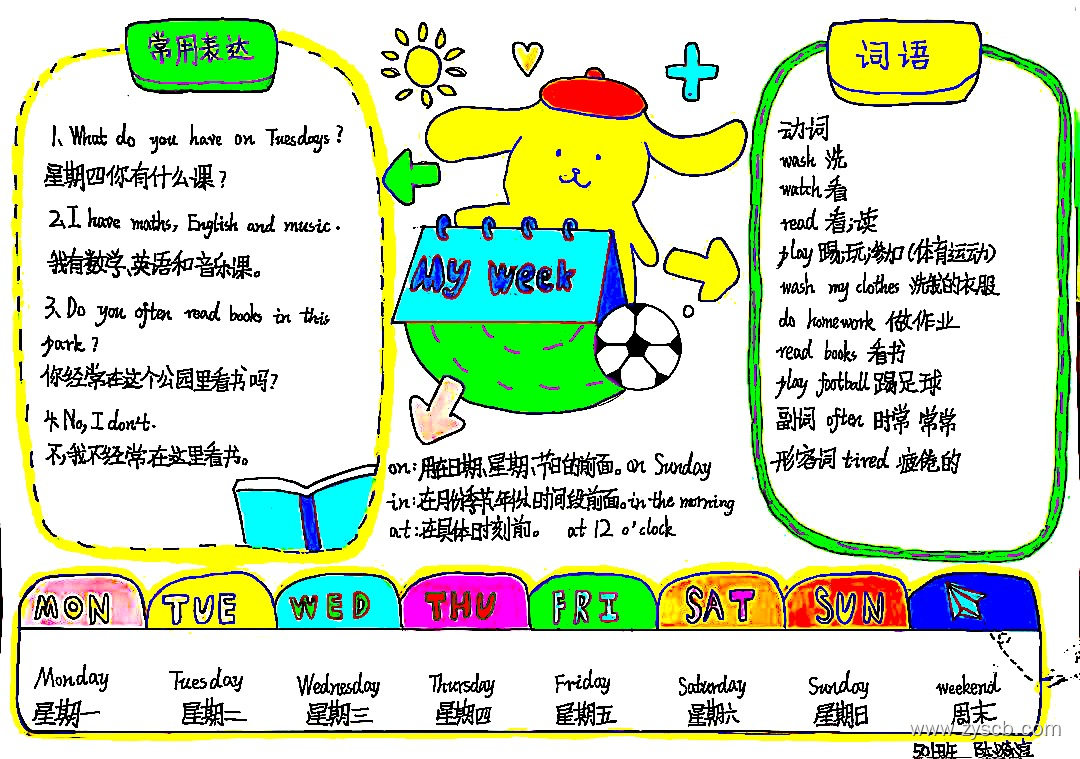 常用表达
1、What do you have on Tuesdays?
星期四你有什么课?
2、I have maths, English and music.
我有数学、英语和音乐课。
3、Do you often read books in this
park?
你经常在这个公园里看书吗?
4、No, I don't.
不,我不经常在这里看书。
My week
on:用在日期、星期、节日的前面。on Sunday
in:在月份季节年份、时间段前面。in the morning
at:在具体时刻前。 at 12 o'clock
词语
动词
wash 洗
watch 看
read 看;读
play 踢;玩;参加(体育运动)
wash my clothes 洗我的衣服
do homework 做作业
read books 看书
play football 踢足球
副词 often 时常 常常
形容词 tired 疲倦的
MON TUE WED THU FRI SAT SUN
Monday Tuesday Wednesday Thursday Friday Saturday Sunday weekend
星期一 星期二 星期三 星期四 星期五 星期六 星期日 周末
www.zyscb.com